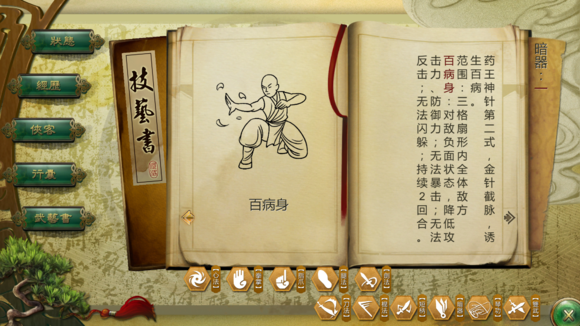 狀態
經歷
俠客
行囊
武藝書
技藝書
百病身
暗器：一
药王神针第二式，金针截脉，诱
生百病。
范围：三格扇形内全体敌方
百病身：对敌负面状态，降低攻
击力、防御力；无法暴击；无法
反击；无法闪躲；持续2回合。